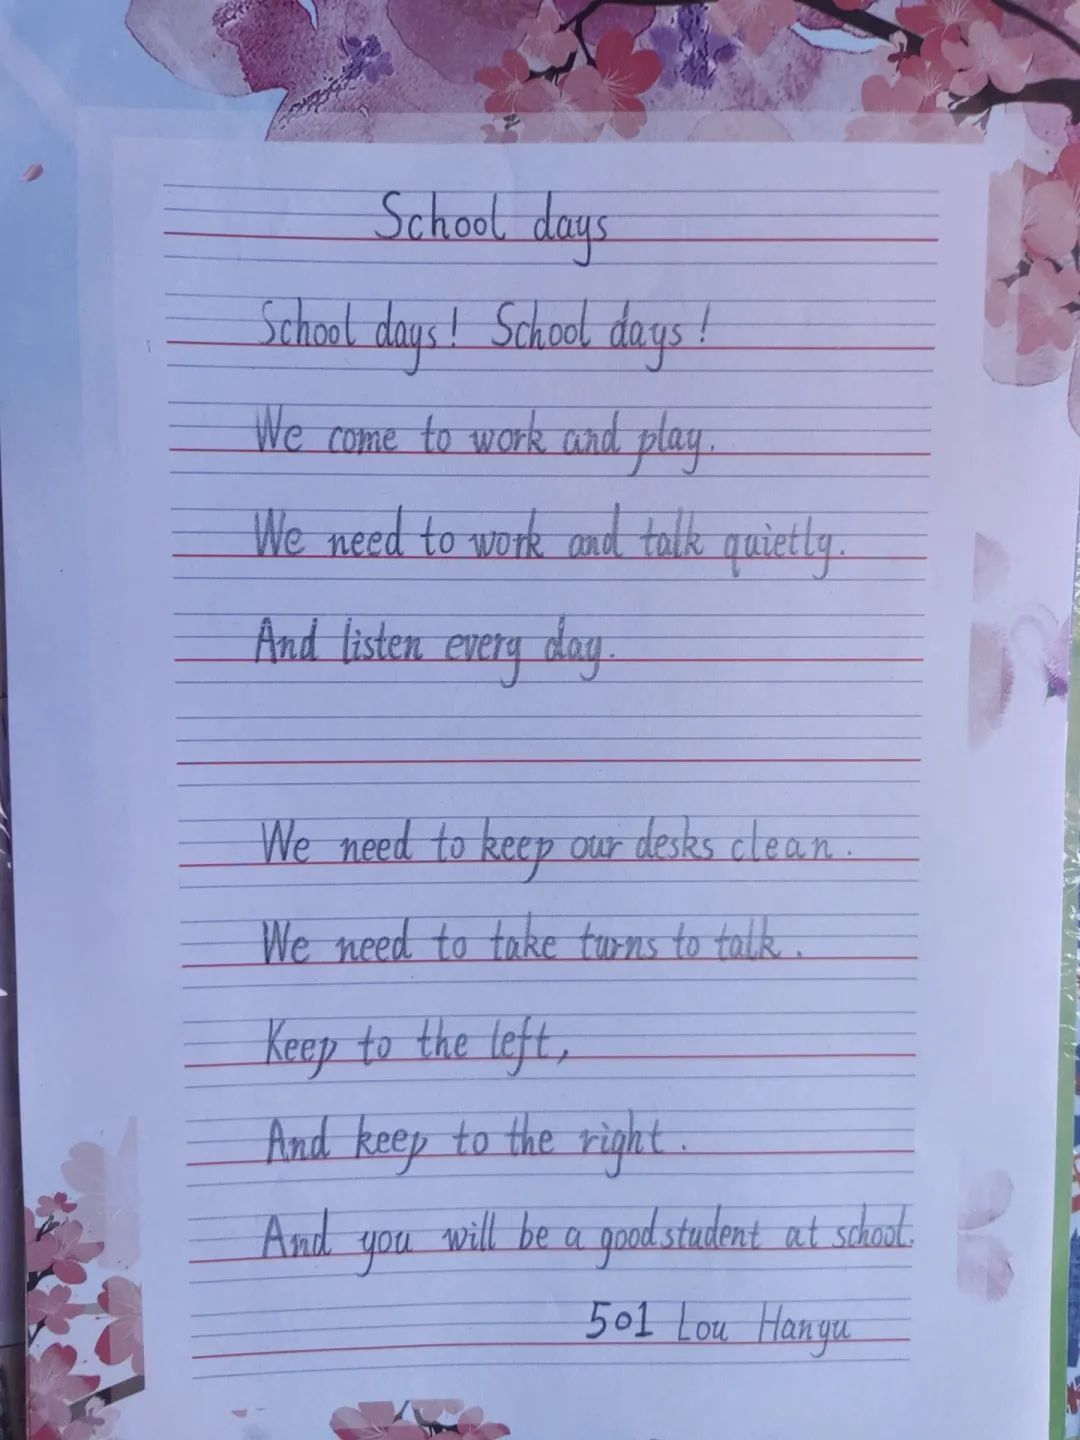 School days
School days! School days!
We come to work and play.
We need to work and talk quietly.
And listen every day.
We need to keep our desks clean.
We need to take turns to talk.
Keep to the left,
And keep to the right.
And you will be a good student at school.
501 Lou Hanyu